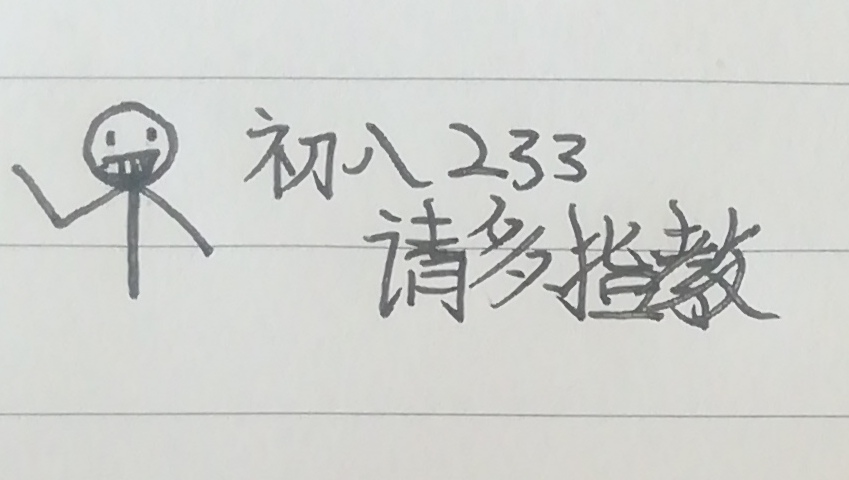 初八233
请多指教